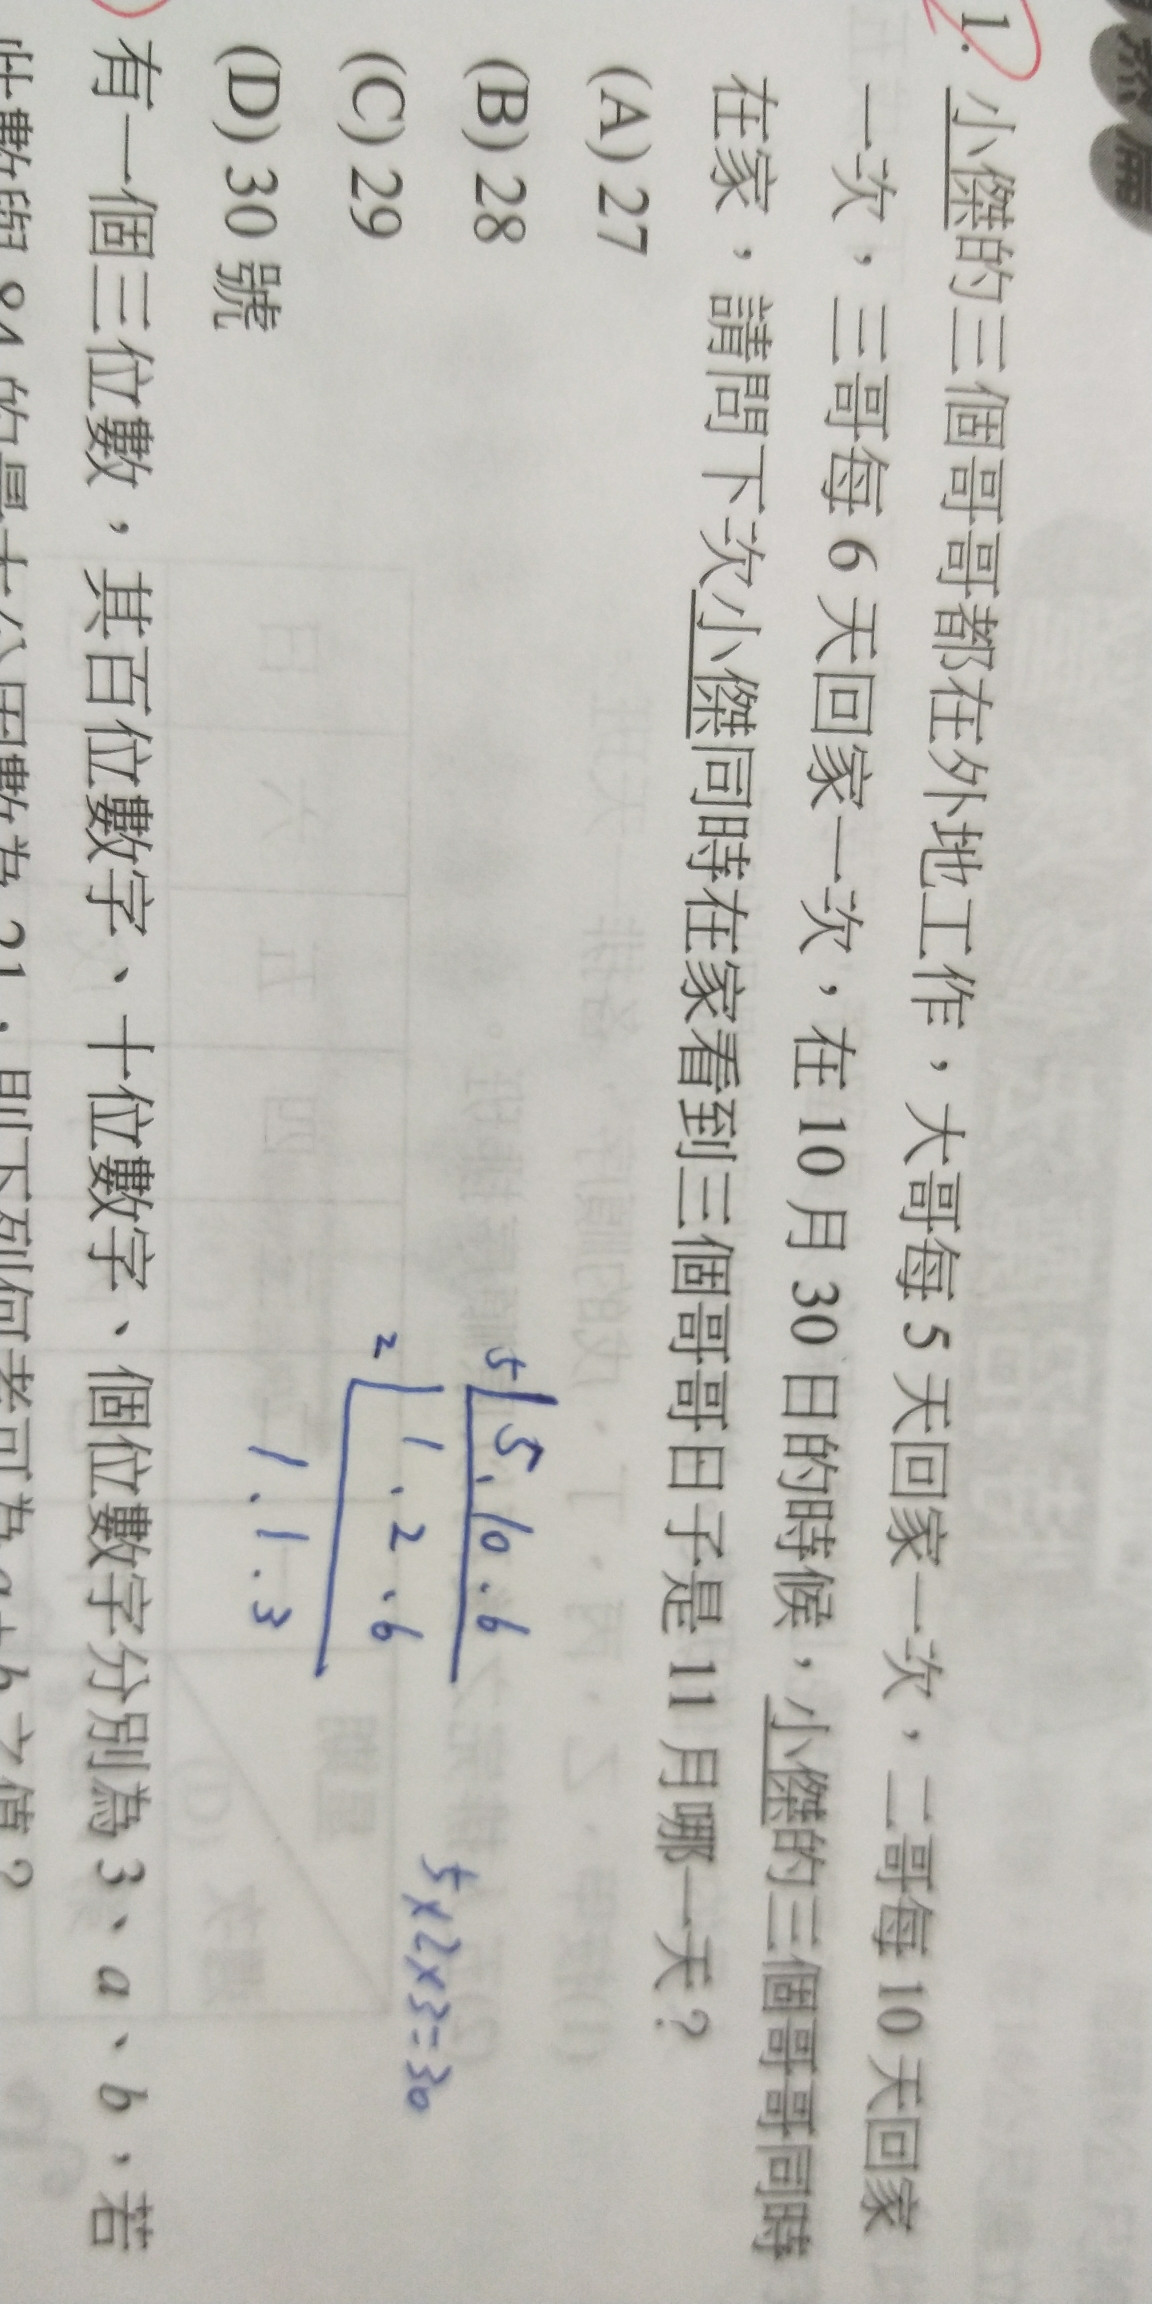 1. 小傑的三個哥哥都在外地工作，大哥每 5 天回家一次，二哥每 10 天回家
一次，三哥每 6 天回家一次，在 10 月 30 日的時候，小傑的三個哥哥同時
在家，請問下次小傑同時在家看到三個哥哥日子是 11 月哪一天？
(A) 27
(B) 28
(C) 29
(D) 30 號
5 5.10.6
2 1.2.6
1.1.3
5×2×3=30
有一個三位數，其百位數字、十位數字、個位數字分別為 3、a、b，若
此數與 84 的最大公因數為 21，則下列何者可為 a+b 之值？